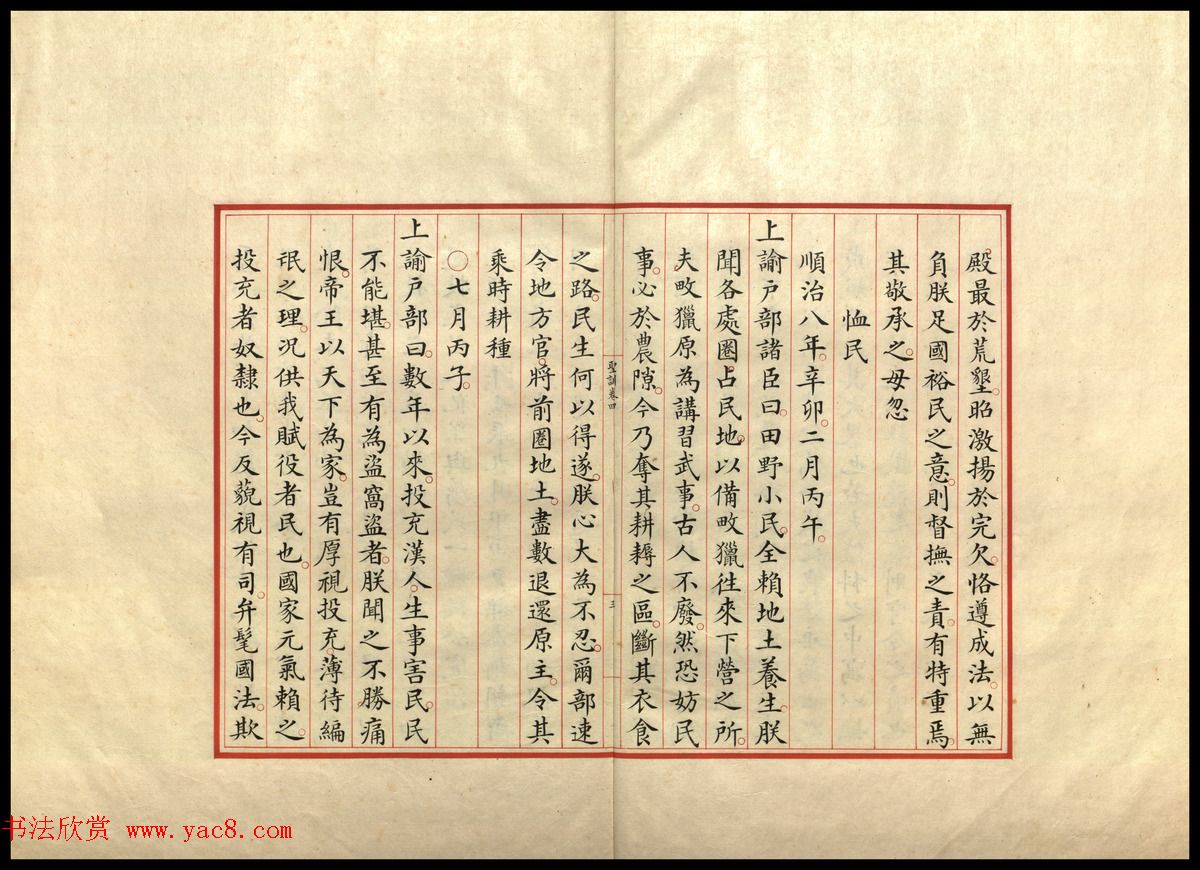 殿最於荒墾。昭激揚於完欠。恪遵成法。以無
負朕足國裕民之意。則督撫之責。有特重焉。
其敬承之。毋忽
恤民
順治八年。辛卯。二月丙午。
上諭户部諸臣曰。田野小民。全賴地土養生。朕
聞各處圈占民地。以備畋獵往來下營之所。
夫畋獵原為講習武事。古人不廢。然恐妨民
事。必於農隙。今乃奪其耕耨之區。斷其衣食
聖訓卷四
三
之路。民生何以得遂。朕心大為不忍。爾部速
令地方官。將前圈地土。盡數退還原主。令其
乘時耕種
○七月丙子。
上諭户部曰。數年以來。投充漢人。生事害民。民
不能堪。甚至有為盜窩盜者。朕聞之不勝痛
恨。帝王以天下為家。豈有厚視投充。薄待編
氓之理。况供我賦役者民也。國家元氣賴之。
投充者奴隸也。今反藐視有司。弁髦國法。欺
书法欣赏 www.yac8.com